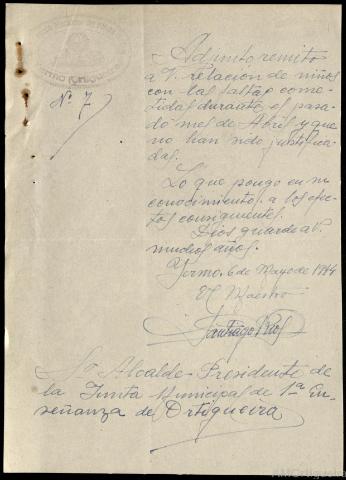 Nº 7
Adjunto remito
a V. relación de niños
con las faltas come-
tidas durante el pasa-
do mes de Abril y que
no han sido justifica-
das.
Lo que pongo en su
conocimiento a los efec-
tos consiguientes.
Dios guarde a V.
muchos años.
Yermo, 6 de Mayo de 1914
El Maestro
Santiago Rios
Sr. Alcalde-Presidente de
la Junta Municipal de 1ª En-
señanza de Ortigueira